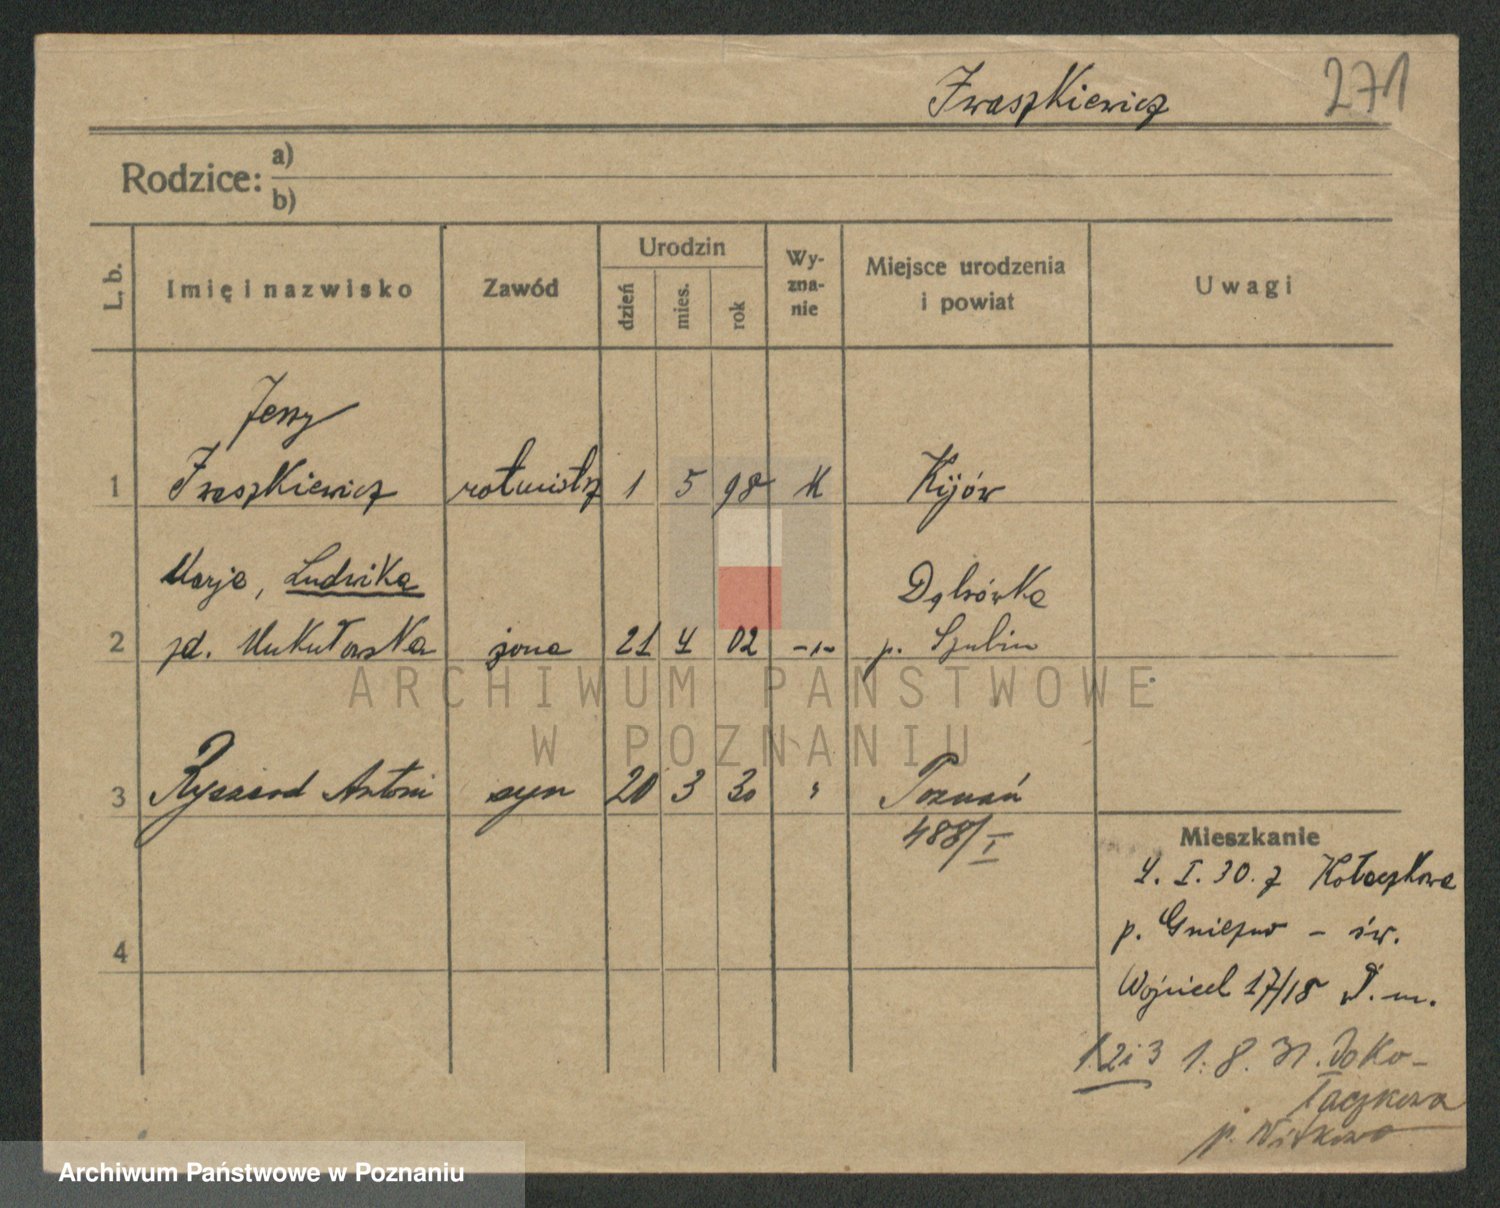 Iwaszkiewicz
271
Rodzice: a)
b)
L. b.
Imię i nazwisko
Zawód
Urodzin
dzień
mies.
rok
Wy-
zna-
nie
Miejsce urodzenia
i powiat
Uwagi
Jerzy
1 Iwaszkiewicz rotmistrz 1 5 98 K Kijów
Marja, Ludwika Dąbrówka
2 zd. żona 21 4 02 -"- p. Szubin
3 Ryszard Antoni syn 20 3 30 " Poznań
488/I
4
Mieszkanie
4. I. 30. z Kołaczkowa
p. Gniezno - św.
Wojciech 17/18 m.
1. 2 i 3 1. 8. 31. do Ko-
łaczkowa
p. Witkowo
ARCHIWUM PAŃSTWOWE
W POZNANIU
Archiwum Państwowe w Poznaniu